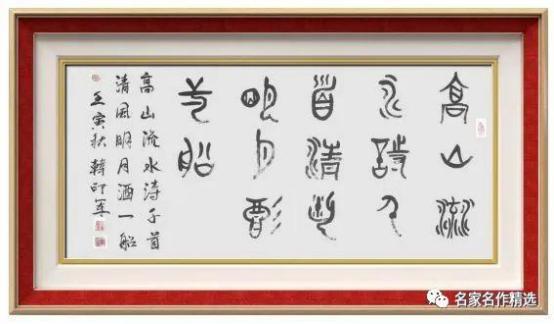 高山流
水詩千
首清風
明月酒
弌船
高山流水诗千首
清风明月酒一船
壬寅秋韓
名家名作精选